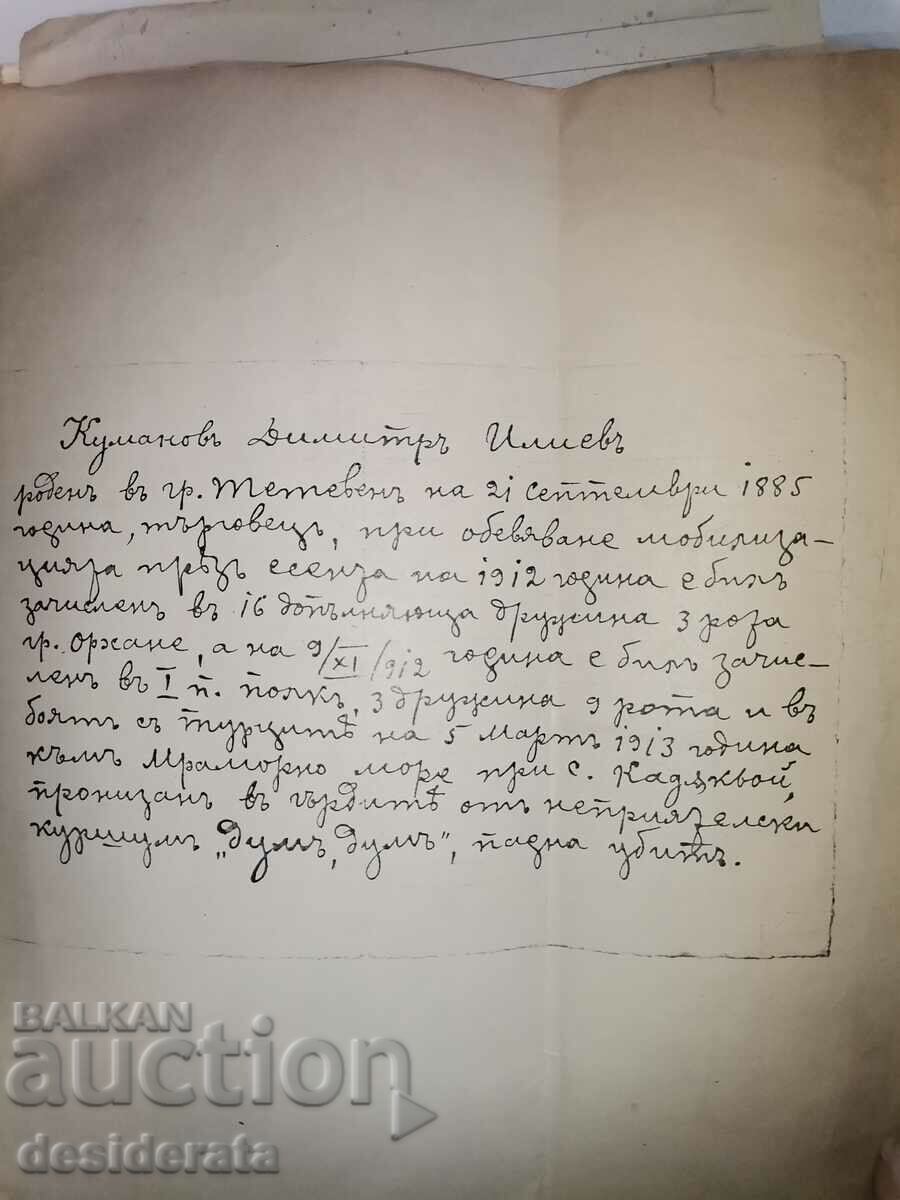 Кумановъ Димитръ Илиевъ
роденъ въ гр. Тетевенъ на 21 септември 1885
година, търговецъ, при обевяване мобилиза-
цията прѣзъ есента на 1912 година е билъ
зачисленъ въ 16 допълняюща дружина 3 рота
гр. Орхане, а на 9/XI/912 година е билъ зачис-
ленъ въ I п. полкъ, 3 дружина 9 рота и въ
боятъ съ турцитѣ на 5 Мартъ 1913 година
къмъ Мраморно море при с. Кадѫквой,
пронизанъ въ гърдитѣ отъ неприятелски
куршумъ „думъ, думъ", падна убитъ.
BALKAN
auction
desiderata